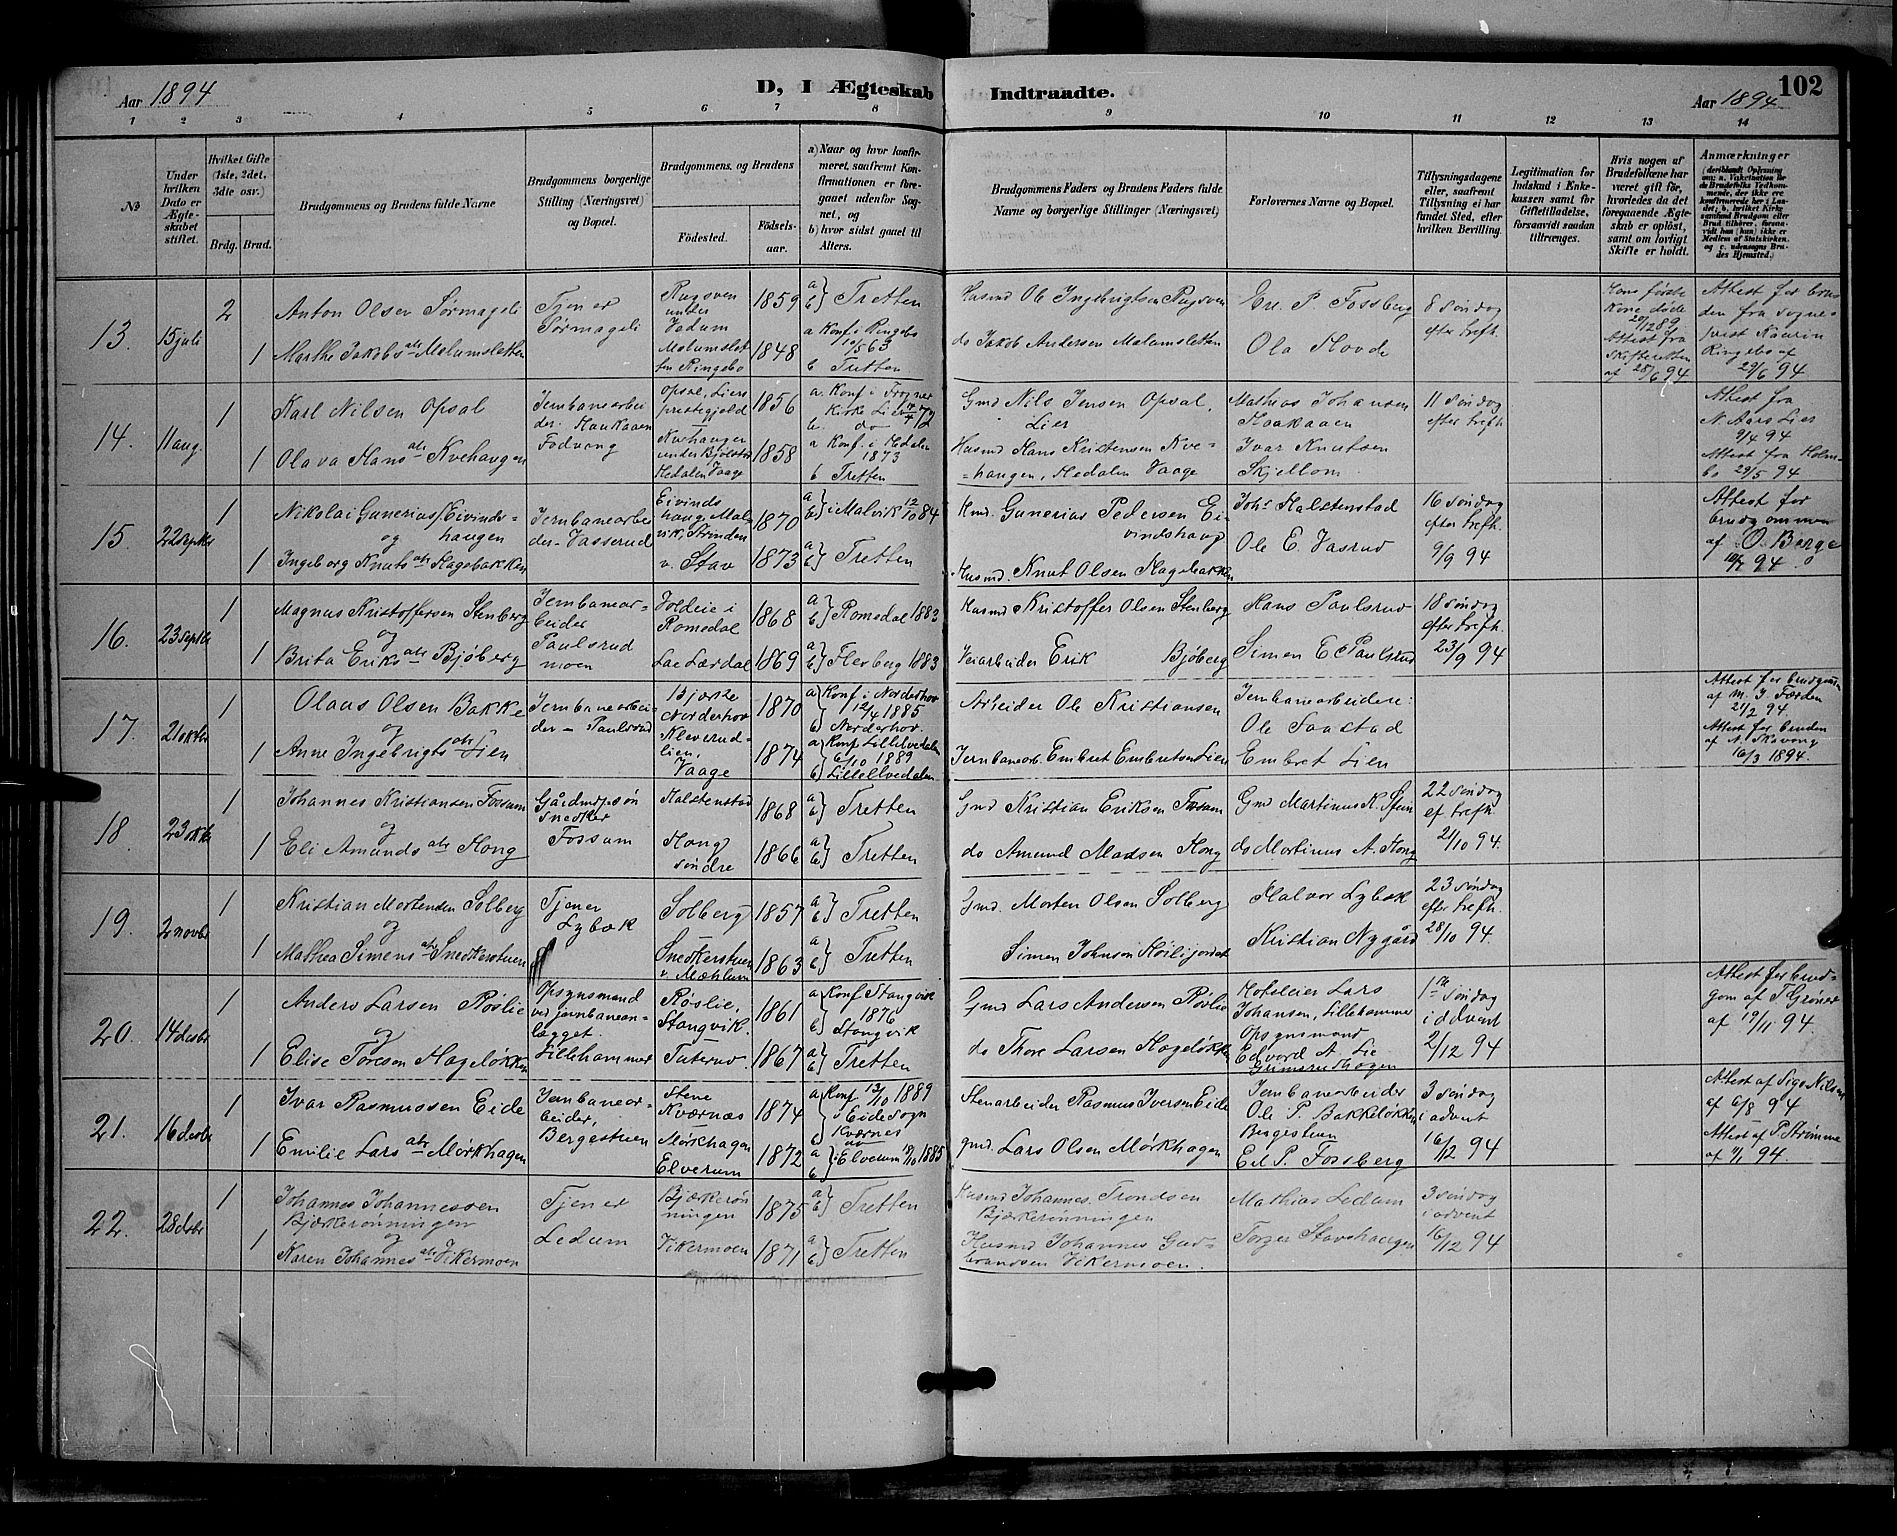 Aar 1894
D, I Ægteskab Indtraadte.
Aar 1894
102
1 2 3 4 5 6 7 8 9 10 11 12 13 14
No
Under hvilken Dato er Ægteskabet stiftet.
Hvilket Gifte (1ste, 2det, 3die osv.)
Brdg. Brud.
Brudgommens og Brudens fulde Navne
Brudgommens borgerlige Stilling (Næringsvei) og Bopæl.
Brudgommens og Brudens
Fødested.
Fødselsaar.
a) Naar og hvor konfirmeret, saafremt Konfirmationen er foregaaet udenfor Sognet, og
b) hvor sidst gaaet til Alters.
Brudgommens Faders og Brudens Faders fulde Navne og borgerlige Stillinger (Næringsvei)
Forlovernes Navne og Bopæl.
Tillysningsdagene eller, saafremt Tillysning ei har fundet Sted, efter hvilken Bevilling.
Legitimation for Indskud i Enkekassen samt for Giftetilladelse, forsaavidt saadan tiltrænges.
Hvis nogen af Brudefolkene har været gift før, hvorledes da det foregaaende Ægteskab er opløst, samt om lovligt Skifte er holdt.
Anmærkninger
13. 15 juli 2 Anton Olsen Sørmageli
Tjener Sørmageli
Rugsven under Vedum 1859
a b} Tretten
Husmd Ole Ingebrigtsen Rugsven
Er. P. Fossberg
8 søndag efter trefh.
Hans første Kone døde 29/12 89 Attest fra Skifteretten af 28/6 94
Attest for bruden fra sogneprest Kaurin Ringebo af 29/6 94.
1 Marthe Jakobsdtr Malumsletten
Malumsletten Ringebo 1848
a Konf i Ringebo 10/5 63 b Tretten
do Jakob Andersen Malumsletten
Ola Hovde
14. 11 aug. 1 Karl Nilsen Opsal
Jernbanearbeider. Haukaaen Fodvang
Opsal, Liers prestegjeld 1856
a. Konf i Frogner Kirke Lier 14/4 72 b. do
Gmd Nils Jensen Opsal, Lier
Mathias Johansen Haakaaen
11 søndag efter trefh
Attest fra N Aars Lier 9/4 94 Attest fra Holmbo 29/5 94
1 Olava Hansdtr Kvehaugen
Kvehaugen under Bjølstad Hedalen, Vaage 1858
a Konf. i Hedalen 1873 b Tretten
Husmd Hans Kristensen Kvehaugen, Hedalen Vaage
Ivar Knutsen Skjellom
15. 22 septbr 1 Nikolai Gunerius Eivindshaugen og
Jernbanearbeider - Vasserud
Eivindshaug Malvik, Strinden 1870
a b} i Malvik 12/10 84
Kmd. Gunerius Pedersen Eivindshaug
Johs Halstenstad
16 søndag efter trefh 9/9 94
Attest for brudgommen af O. Berge 10/7 94.
1 Ingeborg Knutsdtr Hagebakken
v. Stav 1873
a b} Tretten
Husmd. Knut Olsen Hagebakken
Ole E. Vasrud
16. 23 septbr 1 Magnus Kristoffersen Stenberg og
Jernbanearbeider Paulsrudmoen
Voldeie i Romedal 1868
a b} Romedal 1883
Husmd Kristoffer Olsen Stenberg
Hans Paulsrud
18 søndag efter trefh. 23/9 94
1 Brita Eriksdtr Bjøberg
Lae Lærdal 1869
a b} Flesberg 1883
Veiarbeider Erik Bjøberg
Simen E Paulsrud
17. 21 oktbr 1 Olaus Olsen Bakke og
Jernbanearbeider - Paulsrud
Bjerke Norderhov 1870
a Konf i Norderhov 12/4 1885 b) Norderhov
Arbeider Ole Kristiansen
Jernbanearbeidere: Ole Saastad
Attest for brudgommen af M. J. Færden 21/2 94. Attest for bruden af A. Skavang 16/3 1894.
1 Anne Ingebrigtsdtr Lien
Kleverudlien, Vaage 1874
a Konf Lilleelvedalen 6/10 1889 b) Lilleelvedalen
Jernbanearb. Embret Embretsen Lien
Embret Lien
18 23 oktbr 1 Johannes Kristiansen Fossum og
Gårdmdssøn snedker Fossum
Halstenstad 1868
a b} Tretten
Gmd Kristian Eriksen Fossum
Gmd Martinus K. Stein
22 søndag ef trefh 21/10 94.
1 Eli Amundsdtr Hong
Hong søndre 1866
a b} Tretten
do Amund Madsen Hong
do Martinus A. Hong
19. 2 novbr 1 Kristian Mortensen Solberg og
Tjener Lybæk
Solberg 1857
a b} Tretten
Gmd. Morten Olsen Solberg
Halvor Lybæk
23 søndag efter trefh. 28/10 94.
1 Mathea Simensdtr Snedkerstuen
Snedkerstuen v. Mæhlum 1863
a b} Tretten
Simen Johnsen Høilijordet
Kristian Nygård
20. 14 desbr 1 Anders Larsen Røslie og
Opsynsmand ved jernbaneanlægget. Lillehammer
Røslie, Stangvik. 1861
a Konf Stangvik 1876 b Stangvik
Gmd Lars Andersen Røslie
Hoteleier Lars Johansen, Lillehammer
1ste søndag i advent 2/12 94
Attest for brudgom af T Grøner af 19/11 94.
1 Elise Toresen Hageløkken
Tuterud. 1867
a b} Tretten
do Thore Larsen Hageløkken
Opsynsmand Edvard A. Lie Grimsrudhagen
21. 16 desbr 1 Ivar Rasmussen Eide
Jernbanearbeider, Bergestuen
Stene Kværnæs 1874
a Konf 13/10 1889 i Eide sogn b Kværnes
Stenarbeider Rasmus Iversen Eide
Jernbanearbeider Ole P. Bakkeløkken Bergestuen
3 søndag i advent 16/12 94
Attest af Sigv Nilsen af 6/8 94 Attest af P Strømme af 7/1 94.
1 Emilie Larsdtr Mørkhagen
Mørkhagen Elverum 1872
a b i Elverum 18/10 1885
gmd. Lars Olsen Mørkhagen
Ed P. Fossberg
22. 28 desbr 1 Johannes Johannessen Bjørkerønningen og
Tjener Ledum
Bjørkerønningen 1875
a b} Tretten
Husmd Johannes Trondsen Bjørkerønningen
Mathias Ledum
3 søndag i advent 16/12 94
1 Karen Johannesdtr Vikermoen
Vikermoen 1871
a b} Tretten
Husmd Johannes Gudbrandsen Vikermoen.
Torger Stavshaugen